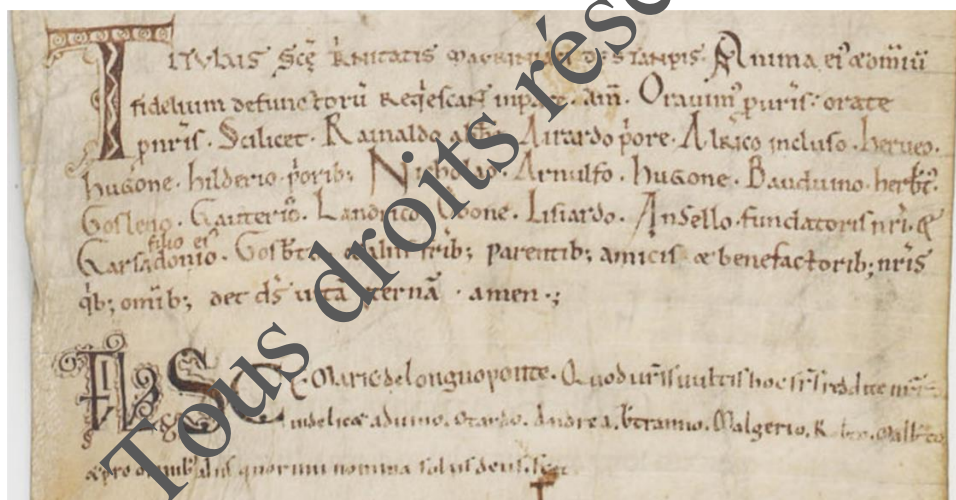 TITVLVS Scę TRNITATIS MAVRINIACI DE STANPIS. Anima ei᷒ & om̄iū
fidelium defunctorū Reqͥescant in pace. am̄. Oravim᷒ p ur̄is: orate
p nr̄is. Scilicet. Rainaldo abbe. Airardo p̄ore. Alrico incluso. herueo.
hugone. hilderio. p̄orib; Nicholao. Arnulfo. hugone. Bauduino. herbt̄o.
Gosleno. Gauterio. Landrico. Odone. Lisiardo. Ansello. fundatoris nr̄i. &
filio ei᷒
Garsadonio. Gosbt̄o & aliis fr̄ib; parentib; amicis & benefactorib; nr̄is
qͥb; omīb; det ds̄ uitā ęternā. amen.;
Marię de longuoponte. Quod ur̄is uultis hoc fr̄s reddite nr̄is
uidelicet aduino. Stardo. Andrea. bt̄ranno. Malgerio.
& pro omnib; aliis quorum nomina solus deus scit
Tous droits rése